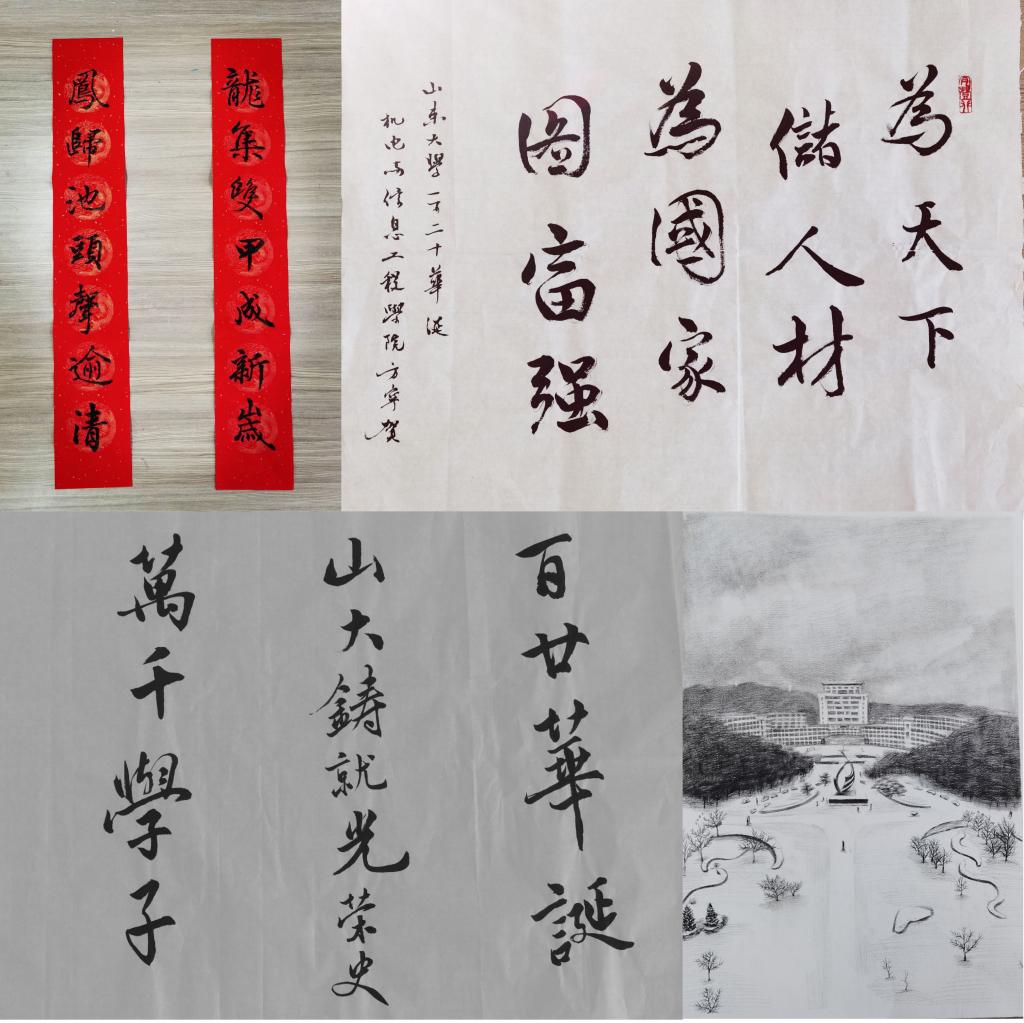 龍集雙甲成新歲
鳳歸池頭聲逾清
為天下
儲人材
為國家
图富强
山东大學一百二十華诞
机电与信息工程學院方宁賀
百廿華誕
山大鑄就光荣史
萬千學子